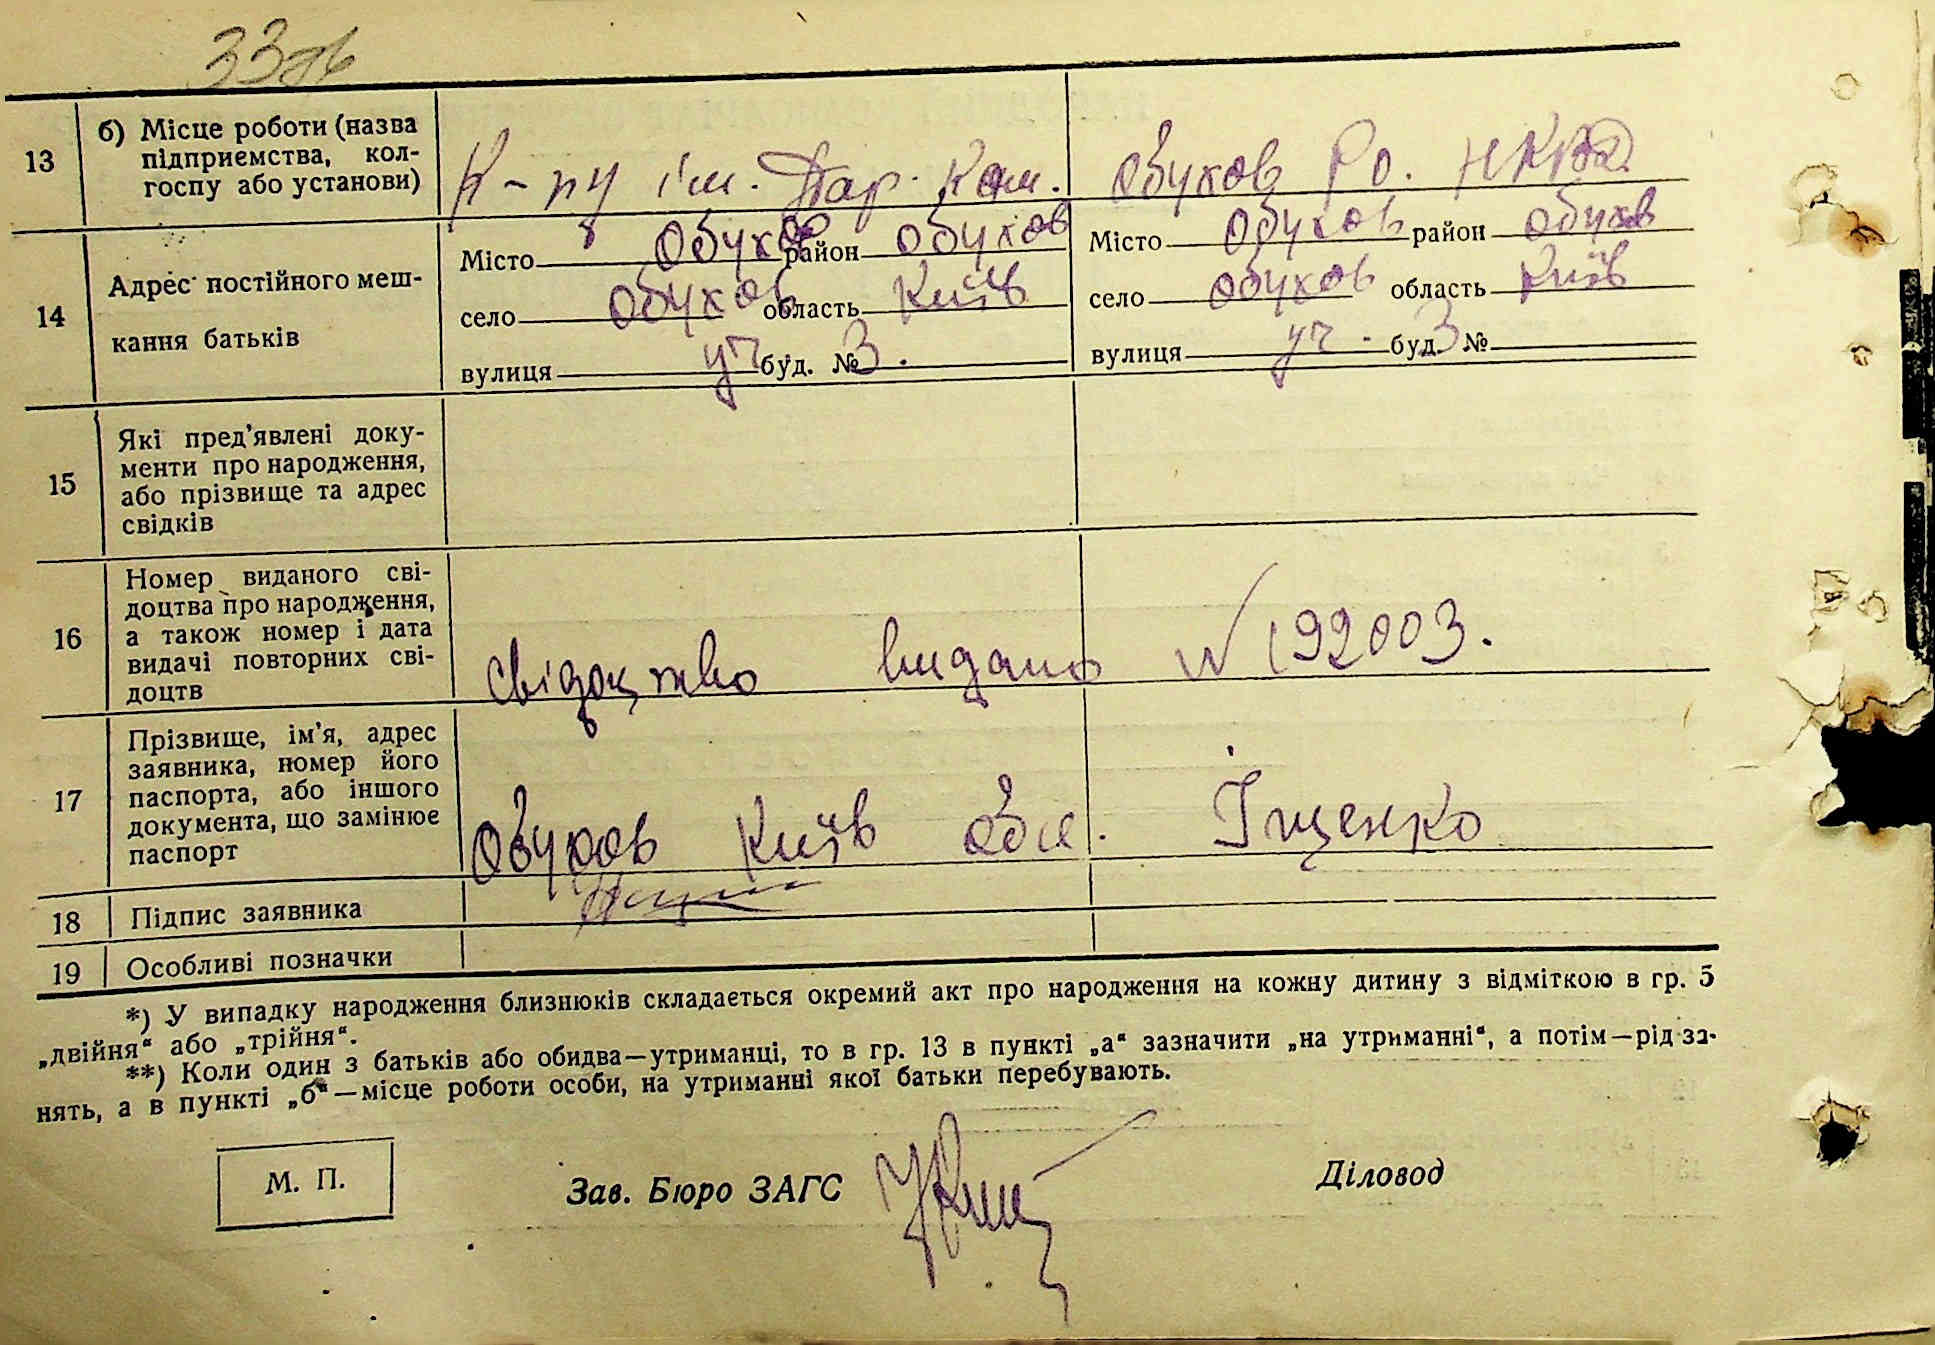 33
13 б) Місце роботи (назва
підприємства, кол-
госпу або установи)
К-пу ім. Пар. Ком. Обухов Ро. НКВД
14 Адрес постійного меш-
кання батьків
Місто Обухов район Обухов Місто Обухов район Обухов
село Обухов область Київ село Обухов область Київ
вулиця уч буд. № 3. вулиця уч. буд. 3 №
15 Які пред’явлені доку-
менти про народження,
або прізвище та адрес
свідків
16 Номер виданого сві-
доцтва про народження,
а також номер і дата
видачі повторних сві-
доцтв
свідоцтво видано № 192003.
17 Прізвище, ім’я, адрес
заявника, номер його
паспорта, або іншого
документа, що замінює
паспорт
Обухов Київ обл. Іщенко
18 Підпис заявника
19 Особливі позначки
*) У випадку народження близнюків складається окремий акт про народження на кожну дитину з відміткою в гр. 5
„двійня“ або „трійня“.
**) Коли один з батьків або обидва—утриманці, то в гр. 13 в пункті „а“ зазначити „на утриманні“, а потім—рід за-
нять, а в пункті „б“—місце роботи особи, на утриманні якої батьки перебувають.
М. П. Зав. Бюро ЗАГС Діловод